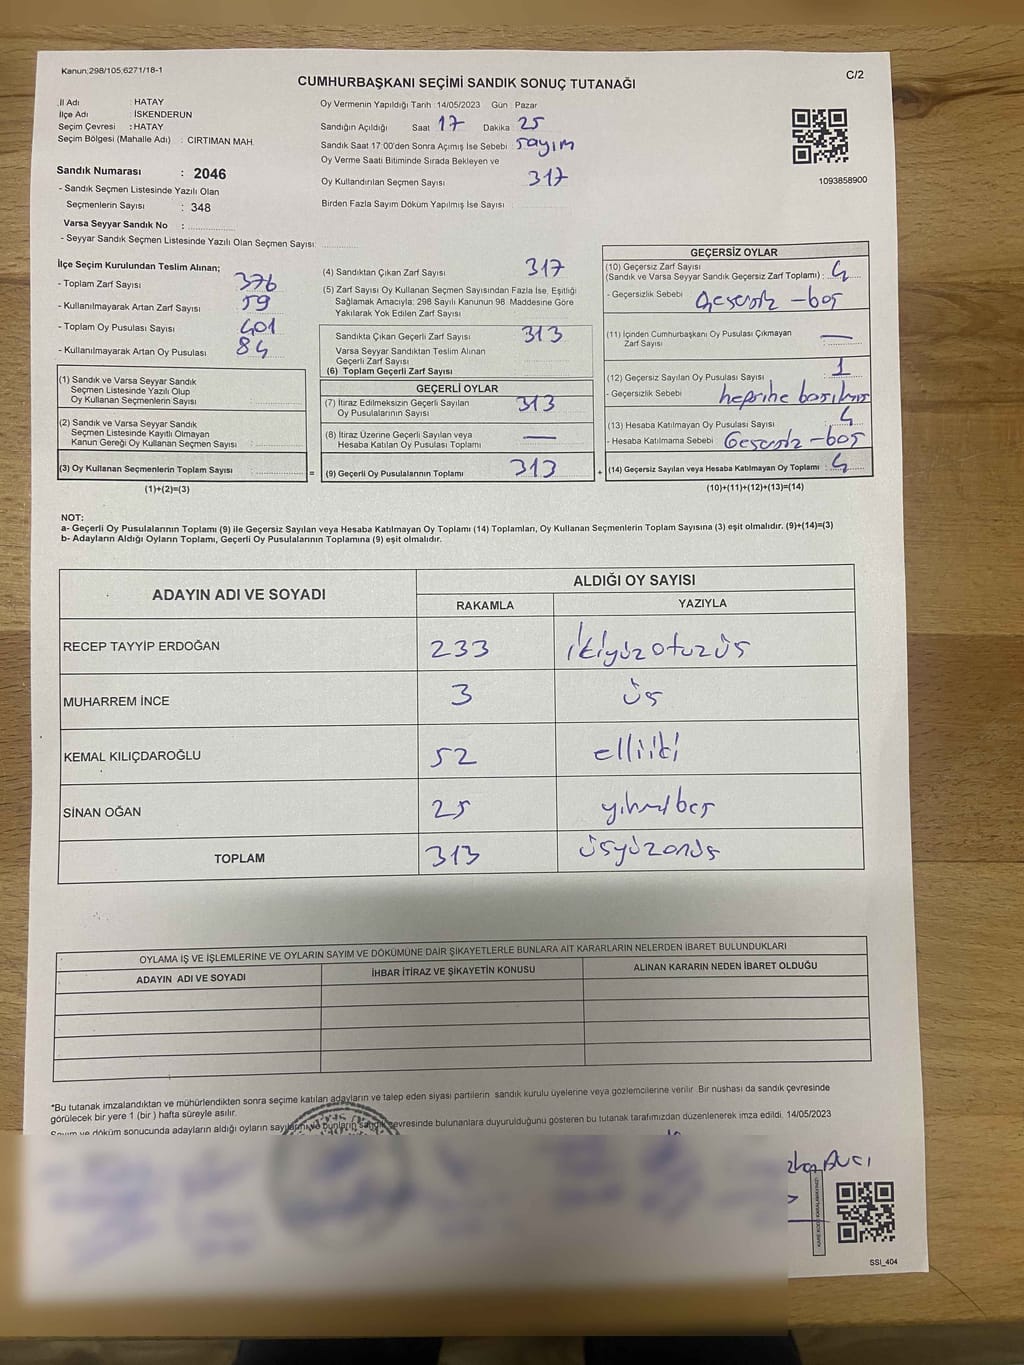 Kanun;298/105;6271/18-1
C/2
CUMHURBAŞKANI SEÇİMİ SANDIK SONUÇ TUTANAĞI
İl Adı : HATAY
İlçe Adı : İSKENDERUN
Seçim Çevresi : HATAY
Seçim Bölgesi (Mahalle Adı) : CIRTIMAN MAH.
Sandık Numarası : 2046
- Sandık Seçmen Listesinde Yazılı Olan
Seçmenlerin Sayısı : 348
Varsa Seyyar Sandık No :
- Seyyar Sandık Seçmen Listesinde Yazılı Olan Seçmen Sayısı:
Oy Vermenin Yapıldığı Tarih : 14/05/2023 Gün : Pazar
Sandığın Açıldığı Saat 17 Dakika : 25
Sandık Saat 17:00'den Sonra Açımış İse Sebebi : sayım
Oy Verme Saati Bitiminde Sırada Bekleyen ve
Oy Kullandırılan Seçmen Sayısı 317
Birden Fazla Sayım Döküm Yapılmış İse Sayısı :
1093858900
İlçe Seçim Kurulundan Teslim Alınan;
- Toplam Zarf Sayısı 376
- Kullanılmayarak Artan Zarf Sayısı 59
- Toplam Oy Pusulası Sayısı 401
- Kullanılmayarak Artan Oy Pusulası 84
(1) Sandık ve Varsa Seyyar Sandık
Seçmen Listesinde Yazılı Olup
Oy Kullanan Seçmenlerin Sayısı :
(2) Sandık ve Varsa Seyyar Sandık
Seçmen Listesinde Kayıtlı Olmayan
Kanun Gereği Oy Kullanan Seçmen Sayısı :
(3) Oy Kullanan Seçmenlerin Toplam Sayısı :
(1)+(2)=(3)
(4) Sandıktan Çıkan Zarf Sayısı 317
(5) Zarf Sayısı Oy Kullanan Seçmen Sayısından Fazla İse, Eşitliği
Sağlamak Amacıyla; 298 Sayılı Kanunun 98. Maddesine Göre
Yakılarak Yok Edilen Zarf Sayısı
Sandıkta Çıkan Geçerli Zarf Sayısı 313
Varsa Seyyar Sandıktan Teslim Alınan
Geçerli Zarf Sayısı
(6) Toplam Geçerli Zarf Sayısı
GEÇERLİ OYLAR
(7) İtiraz Edilmeksizin Geçerli Sayılan
Oy Pusulalarının Sayısı 313
(8) İtiraz Üzerine Geçerli Sayılan veya
Hesaba Katılan Oy Pusulası Toplamı —
= (9) Geçerli Oy Pusulalarının Toplamı 313
GEÇERSİZ OYLAR
(10) Geçersiz Zarf Sayısı
(Sandık ve Varsa Seyyar Sandık Geçersiz Zarf Toplamı) : 4
- Geçersizlik Sebebi Geçersiz - boş
(11) İçinden Cumhurbaşkanı Oy Pusulası Çıkmayan
Zarf Sayısı : —
(12) Geçersiz Sayılan Oy Pusulası Sayısı : 1
- Geçersizlik Sebebi hepsine basılmış
(13) Hesaba Katılmayan Oy Pusulası Sayısı : 4
- Hesaba Katılmama Sebebi Geçersiz - boş
+ (14) Geçersiz Sayılan veya Hesaba Katılmayan Oy Toplamı : 4
(10)+(11)+(12)+(13)=(14)
NOT:
a- Geçerli Oy Pusulalarının Toplamı (9) ile Geçersiz Sayılan veya Hesaba Katılmayan Oy Toplamı (14) Toplamları, Oy Kullanan Seçmenlerin Toplam Sayısına (3) eşit olmalıdır. (9)+(14)=(3)
b- Adayların Aldığı Oyların Toplamı, Geçerli Oy Pusulalarının Toplamına (9) eşit olmalıdır.
ADAYIN ADI VE SOYADI ALDIĞI OY SAYISI
RAKAMLA YAZIYLA
RECEP TAYYİP ERDOĞAN 233 ikiyüzotuzüç
MUHARREM İNCE 3 üç
KEMAL KILIÇDAROĞLU 52 elliiki
SİNAN OĞAN 25 yirmibeş
TOPLAM 313 üçyüzonüç
OYLAMA İŞ VE İŞLEMLERİNE VE OYLARIN SAYIM VE DÖKÜMÜNE DAİR ŞİKAYETLERLE BUNLARA AİT KARARLARIN NELERDEN İBARET BULUNDUKLARI
ADAYIN ADI VE SOYADI İHBAR İTİRAZ VE ŞİKAYETİN KONUSU ALINAN KARARIN NEDEN İBARET OLDUĞU
*Bu tutanak imzalandıktan ve mühürlendikten sonra seçime katılan adayların ve talep eden siyasi partilerin sandık kurulu üyelerine veya gözlemcilerine verilir. Bir nüshası da sandık çevresinde
görülecek bir yere 1 (bir ) hafta süreyle asılır.
Sayım ve döküm sonucunda adayların aldığı oyların sayılarını ve bunların sandık çevresinde bulunanlara duyurulduğunu gösteren bu tutanak tarafımızdan düzenlenerek imza edildi. 14/05/2023
SSI_404